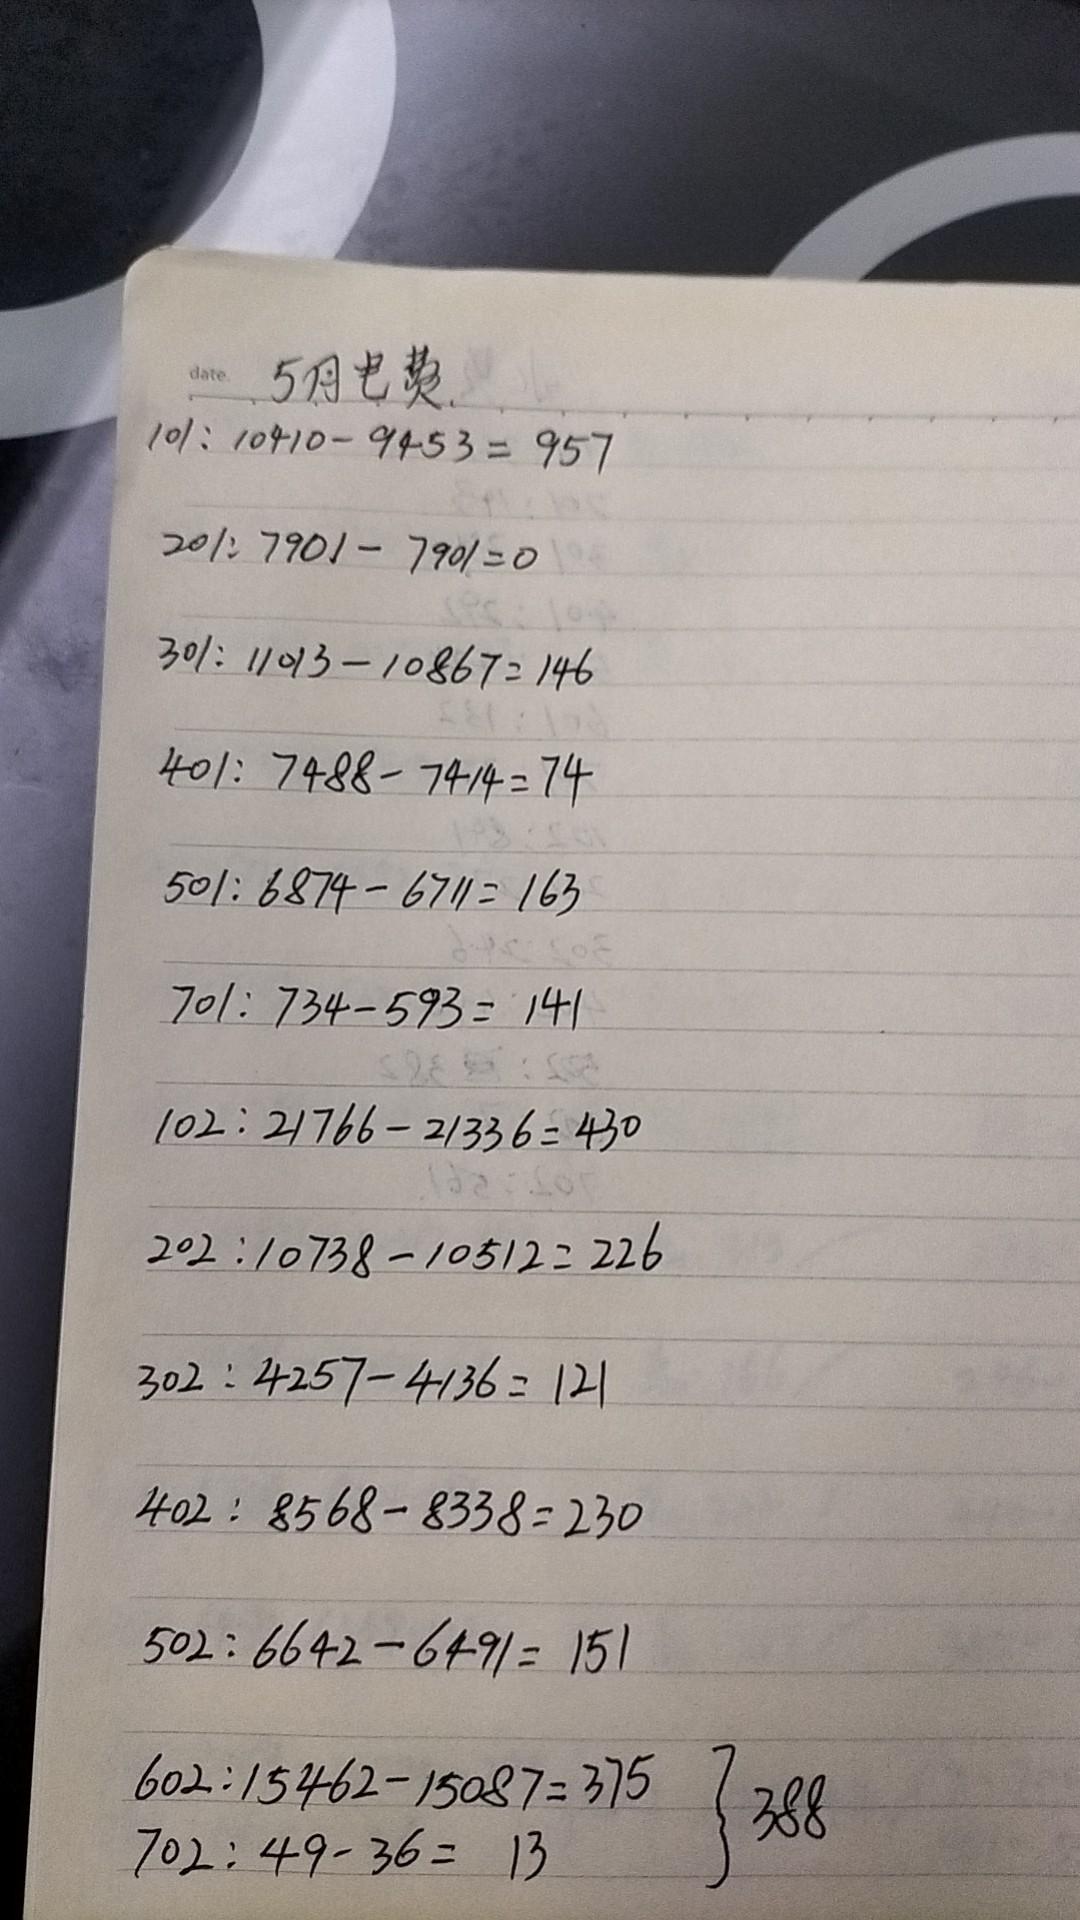 date. 5月电费.
101: 10410-9453=957
201: 7901-7901=0
301: 11013-10867=146
401: 7488-7414=74
501: 6874-6711=163
701: 734-593=141
102: 21766-21336=430
202: 10738-10512=226
302: 4257-4136=121
402: 8568-8338=230
502: 6642-6491=151
602: 15462-15087=375
702: 49-36=13
} 388